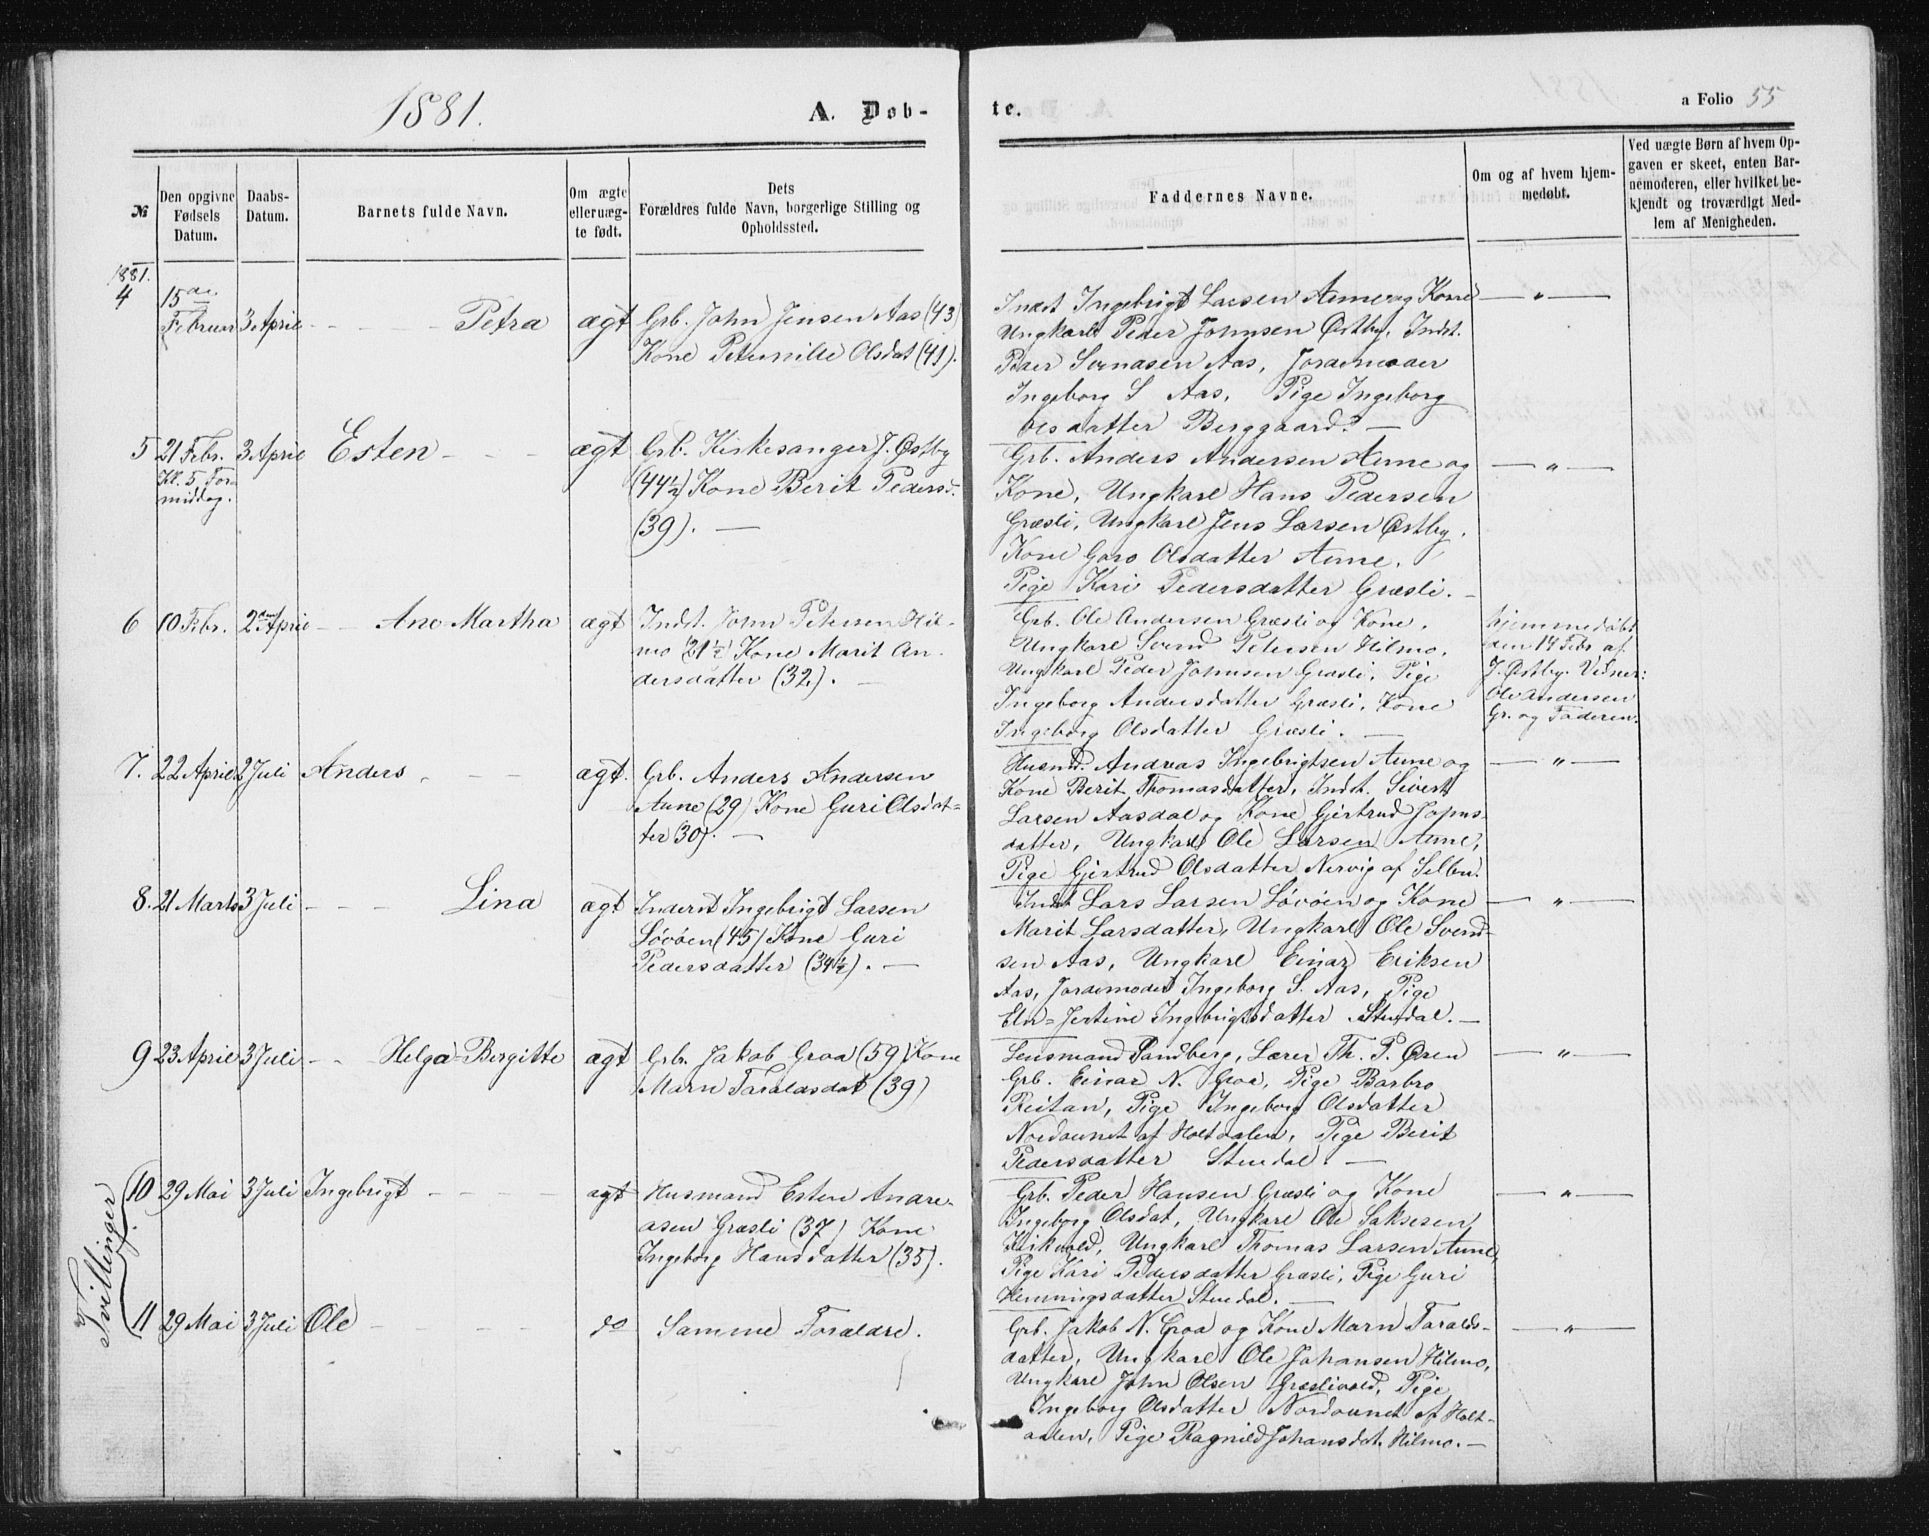 1881. A. Døb-
te.
a Folio 55
№
Den opgivne Fødsels Datum.
Daabs-Datum.
Barnets fulde Navn.
Om ægte eller uæg-te født.
Dets Forældres fulde Navn, borgerlige Stilling og Opholdssted.
Faddernes Navne.
Om og af hvem hjem-medøbt.
Ved uægte Børn af hvem Op-gaven er skeet, enten Bar-nemoderen, eller hvilket be-kjendt og troværdigt Med-lem af Menigheden.
1881.
4 15de Februar 3 April - - - Petra ægt
Grb. John Jensen Aas (43)
Kone Peternille Olsdat (41).
Indst Ingebrigt Larsen Aune og Kone — " —
Ungkarl Peder Johnsen Østby, Indst.
Peder Svendsen Aas, Jordemoder
Ingeborg S Aas, Pige Ingeborg
Olsdatter Berggaard. —
5 21 Febr. Kl. 5 For-middag. 3 April Esten - - - ægt
Grb. Kirkesanger J. Østby
(44½) Kone Berit Pedersd.
(39). —
Grb. Anders Andersen Aune og — " —
Kone, Ungkarl Hans Pedersen
Græsli, Ungkarl Jens Larsen Østby,
Kone Goro Olsdatter Aune,
Pige Kari Pedersdatter Græsli. -
6 10 Febr. 2den April - - Ane-Martha ægt
Indst. John Petersen Hil-
mo (21½) Kone Marit An-
dersdatter (32). —
Grb. Ole Andersen Græsli og Kone,
Ungkarl Svend Petersen Hilmo,
Ungkarl Peder Johnsen Græsli, Pige
Ingeborg Andersdatter Græsli, Kone
Ingeborg Olsdatter Græsli. —
hjemmedøbt
den 14 Febr af
J. Østby. Vidner:
Ole Andersen
Gr. og Faderen.
7. 22 April 2 Juli Anders - - - ægt.
Grb. Anders Andersen
Aune (29) Kone Guri Olsdat-
ter 30). —
Husmd. Andreas Ingebrigtsen Aune og — " —
Kone Berit Thomasdatter, Indst. Sivert
Larsen Aasdal og Kone Gjertrud Johns-
datter, Ungkarl Ole Larsen Aune,
Pige Gjertrud Olsdatter Nervig af Selbu.
8. 21 Marts 3 Juli - - - Lina ægt
Inderst Ingebrigt Larsen
Løvøen (45) Kone Guri
Pedersdatter (34½). —
Indst Lars Larsen Løvøen og Kone — " —
Marit Larsdatter, Ungkarl Ole Svend-
sen Aas, Ungkarl Einar Eriksen
Aas, Jordemoder Ingeborg S. Aas, Pige
Elen-Jertine Ingebrigtsdatter Stuedal. —
9 23 April 3 Juli - - Helga-Bergitte ægt
Grb. Jakob Groa (59) Kone
Marn Taraldsdat (39)
Lensmand Sandberg, Lærer Th. P. Øren — " —
Grb. Einar N. Groa, Pige Barbro
Reitan, Pige Ingeborg Olsdatter
Nordaunet af Holtaalen, Pige Berit
Pedersdatter Stuedal. —
Tvillinger
10 29 Mai 3 Juli Ingebrigt - - - ægt
Husmand Esten Andre-
asen Græsli (37) Kone
Ingeborg Hansdatter (35).
Grb. Peder Hansen Græsli og Kone — " —
Ingeborg Olsdat, Ungkarl Ole Saksesen
Kirkvold, Ungkarl Thomas Larsen Aune,
Pige Kari Pedersdatter Græsli, Pige Guri
Henningsdatter Stuedal. —
11 29 Mai 3 Juli Ole - - - - do
Samme Forældre.
Grb. Jakob N. Groa og Kone Marn Taralds- — " —
datter, Ungkarl Ole Johansen Hilmo,
Ungkarl John Olsen Græslivold, Pige
Ingeborg Olsdatter Nordaunet af Holt-
aalen, Pige Ragnild Johansdat. Hilmo. —